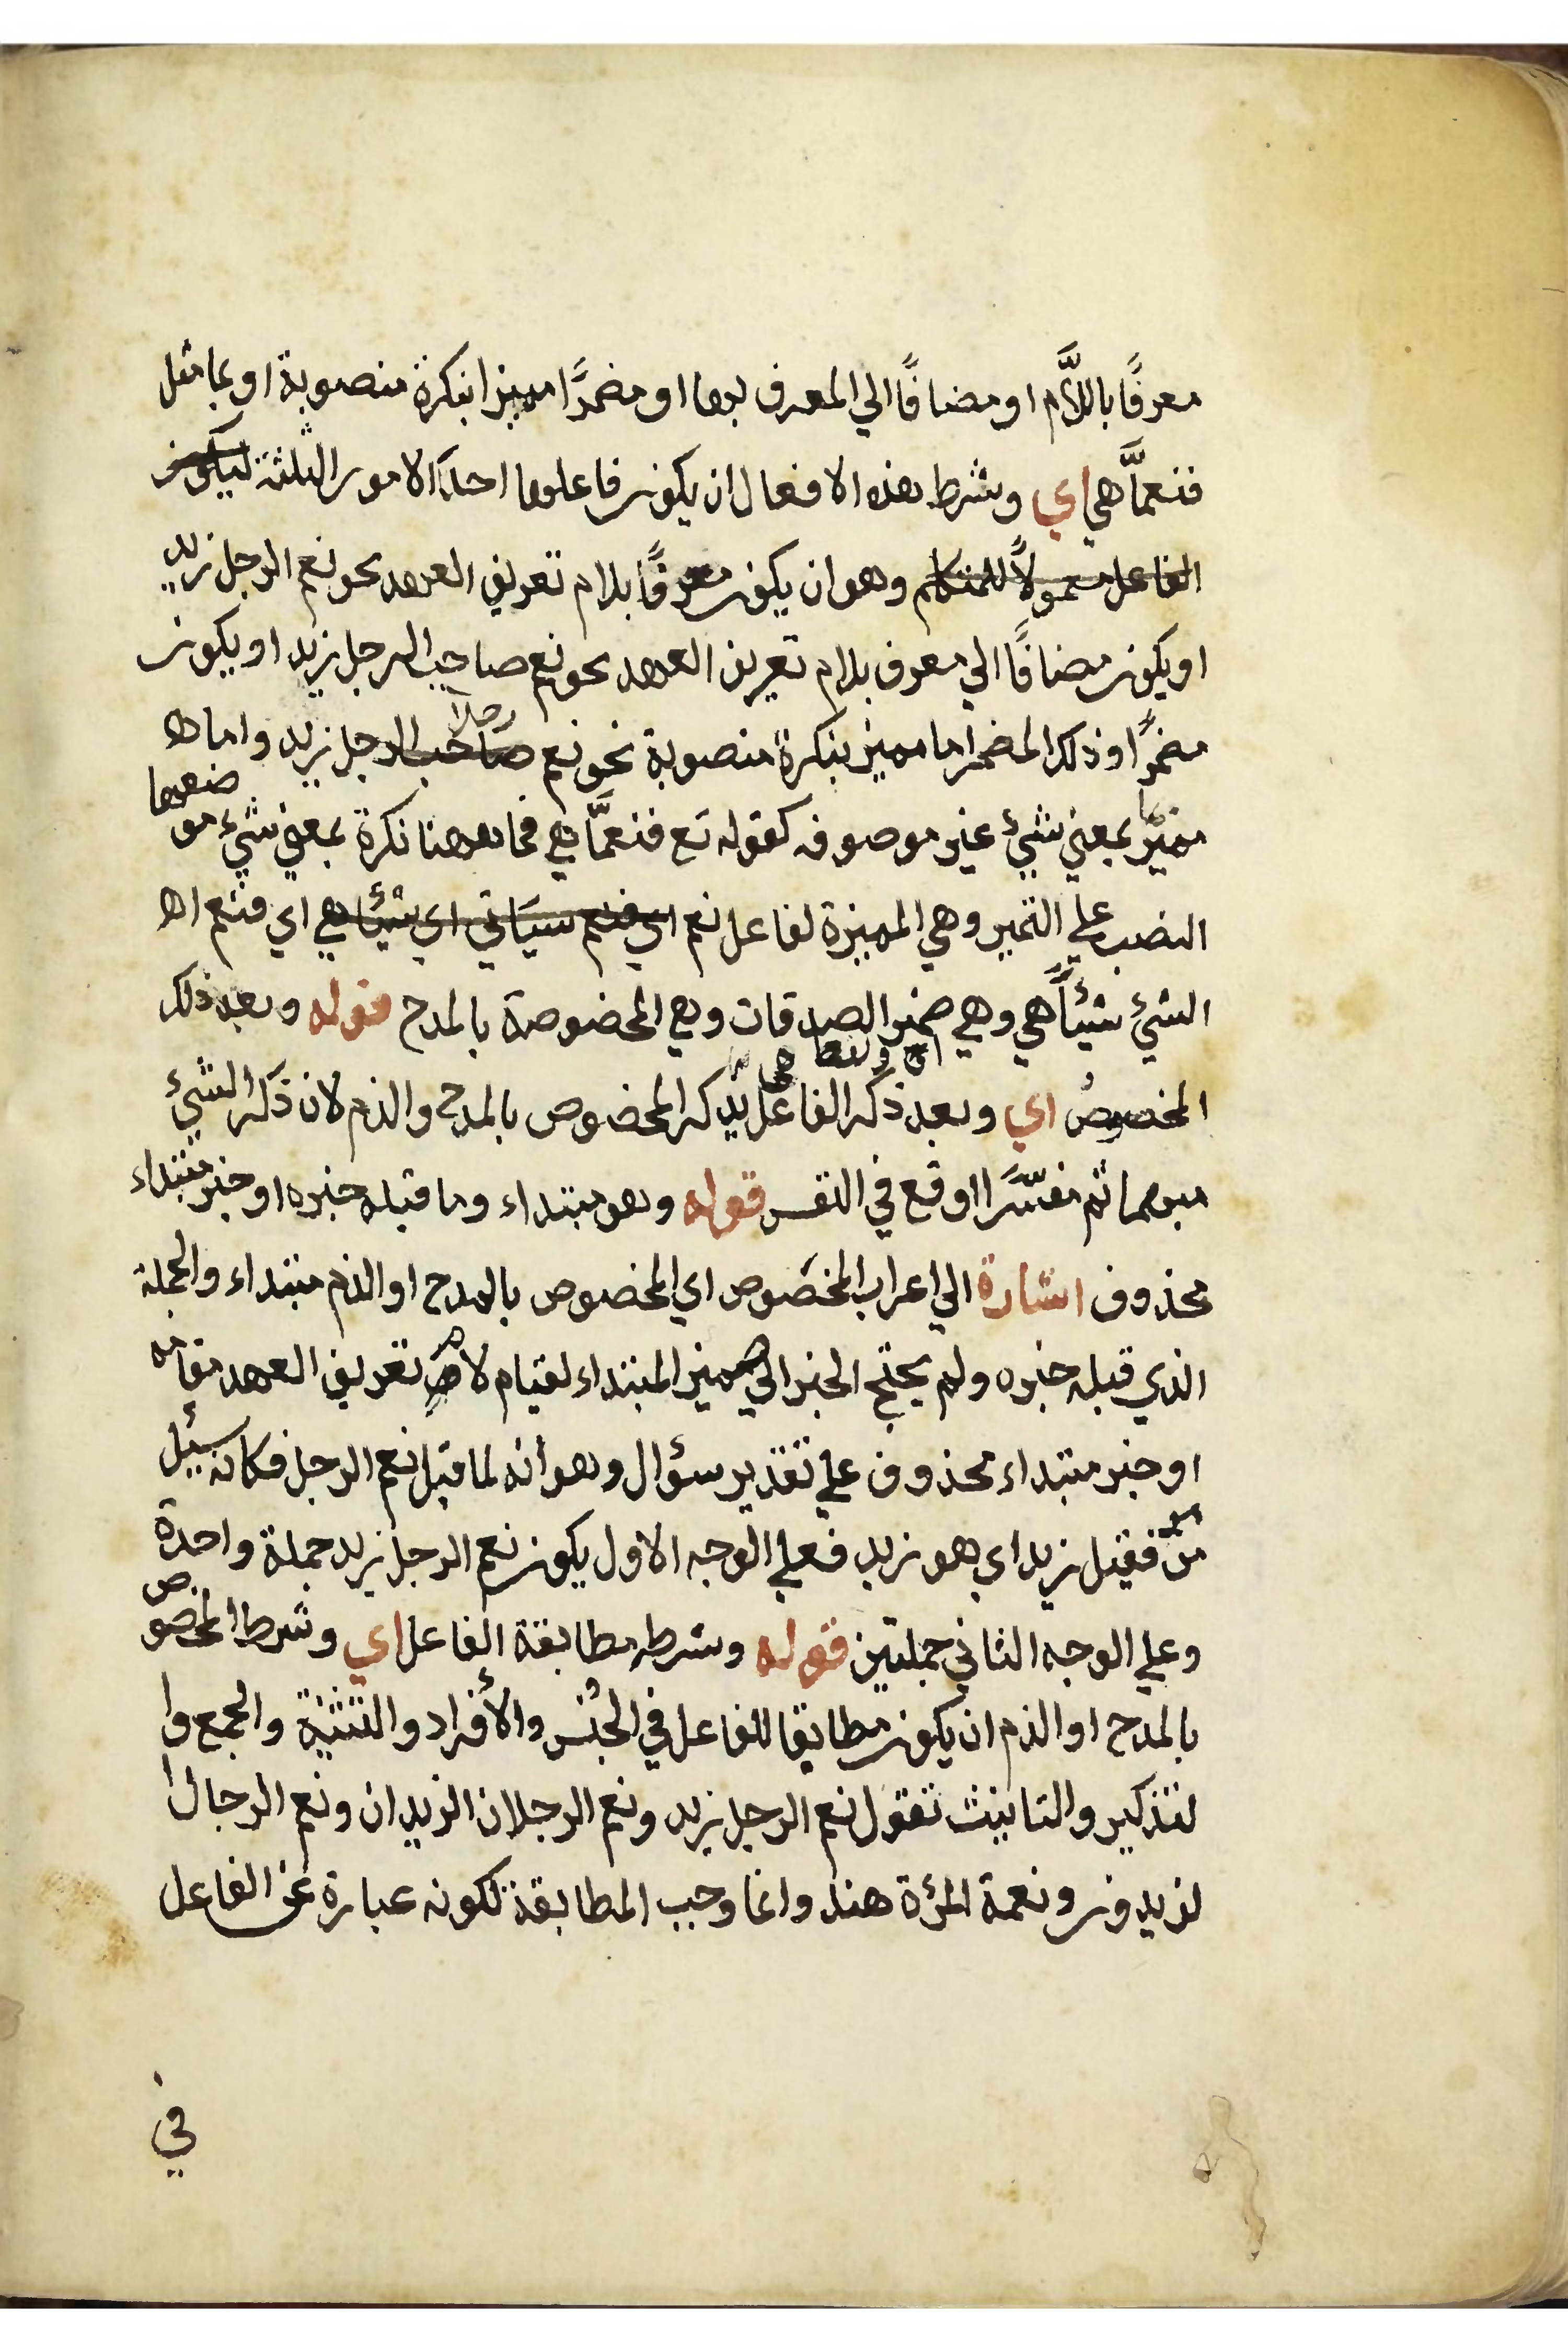 معرفًا باللَّام او مضافًا الي المعرف بها او مضمرًا مميزا بنكرة منصوبة او بما مثل
فنعمَّا هي اي وشرط هذه الافعال ان يكون فاعلها احدَ الامور الثلثة ليكون
الفاعل معمولاً للمتكلم وهو ان يكون معرفًا بلام تعريف العهد نحو نعم الرجل زيد
او يكون مضافًا الي معرف بلام تعريف العهد نحو نعم صاحب الرجل زيد او يكون
رجلا
مضمرًا وذلك المضمر اما مميز بنكرة منصوبة نحو نعم صاحب الرجل زيد واما ها
مميزًا بمعني شيئ غير موصوفه كقوله تع فنعمَّا هي فما ههنا نكرة بمعني شيء موضعها
النصب علي التميز وهي المميزة لفاعل نعم اي فنعم سيَاتي اي شيئا هي اي فنعم اها
الشيئ شيئاً هي وهي ضمير الصدقات وهي المخصوصة بالمدح قوله وبعد ذلك
المخصوصُ اي وبعد ذكر الفاعل يذكر المخصوص بالمدح والذم لان ذكر الشيئ
مبهما ثم مفسَّرًا اوقع في النفس قوله وهو مبتداء وما قبله خبره او خبر مبتداء
محذوف اشارة الي اعراب المخصَوص اي المخصوص بالمدح او الذم مبتداء والجملة
الذي قبله خبره ولم يحتج الخبر الي ضمير المبتداء لقيام لام تعريف العهد مقامه
او خبر مبتداء محذوف علي تقدير سؤال وهو أنه لما قيل نعم الرجل فكانه سيئل
من فقيل زيد اي هو زيد فعلي الوجه الاول يكون نعم الرجل زيد جملة واحدة
وعلي الوجه الثاني جملتين قوله وشرطه مطابقة الفاعل اي وشرط المخصوص
بالمدح او الذم ان يكون مطابقا للفاعل في الجنس والأفراد والتثنية والجمع وا
لتذكير والتانيث تقول نعم الرجل زيد ونعم الرجلان الزيدان ونعم الرجال ا
لزيدون ونعمة المرئة هند وانما وجب المطابقة لكونه عبارة عن الفاعل
في